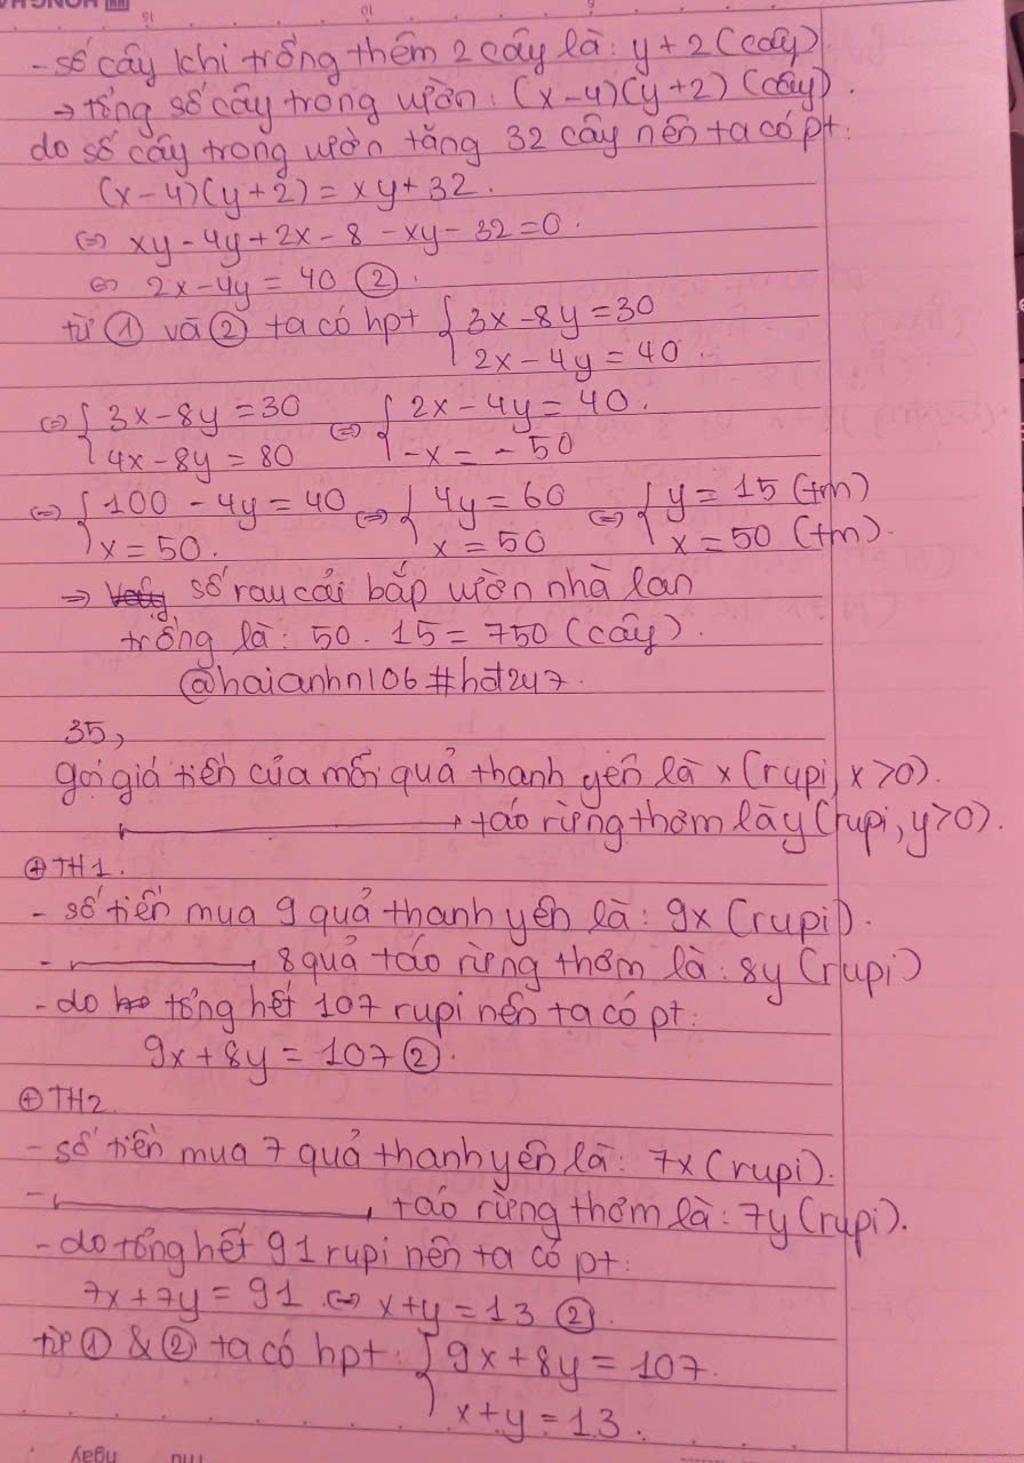 - số cây khi trồng thêm 2 cây là: y + 2 (cây)
→ tổng số cây trong vườn: (x-4)(y+2) (cây).
do số cây trong vườn tăng 32 cây nên ta có pt:
(x-4)(y+2) = xy + 32.
⇔ xy - 4y + 2x - 8 - xy - 32 = 0.
⇔ 2x - 4y = 40 ②.
từ ① và ② ta có hpt { 3x - 8y = 30
2x - 4y = 40.
⇔ { 3x - 8y = 30 ⇔ { 2x - 4y = 40.
4x - 8y = 80 -x = -50
⇔ { 100 - 4y = 40 ⇔ { 4y = 60 ⇔ { y = 15 (tm)
x = 50. x = 50 x = 50 (tm).
⇒ số rau cải bắp vườn nhà lan
trồng là: 50 . 15 = 750 (cây).
@haianhn106#hđ247.
35,
gọi giá tiền của mỗi quả thanh yên là x (rupi, x>0).
táo rừng thơm là y (rupi, y>0).
⊕ TH1.
- số tiền mua 9 quả thanh yên là: 9x (rupi).
- 8 quả táo rừng thơm là: 8y (rupi)
- do tổng hết 107 rupi nên ta có pt:
9x + 8y = 107 ②.
⊕ TH2.
- số tiền mua 7 quả thanh yên là: 7x (rupi).
- táo rừng thơm là: 7y (rupi).
- do tổng hết 91 rupi nên ta có pt:
7x + 7y = 91 ⇔ x + y = 13 ②.
từ ① & ② ta có hpt: { 9x + 8y = 107.
x + y = 13.